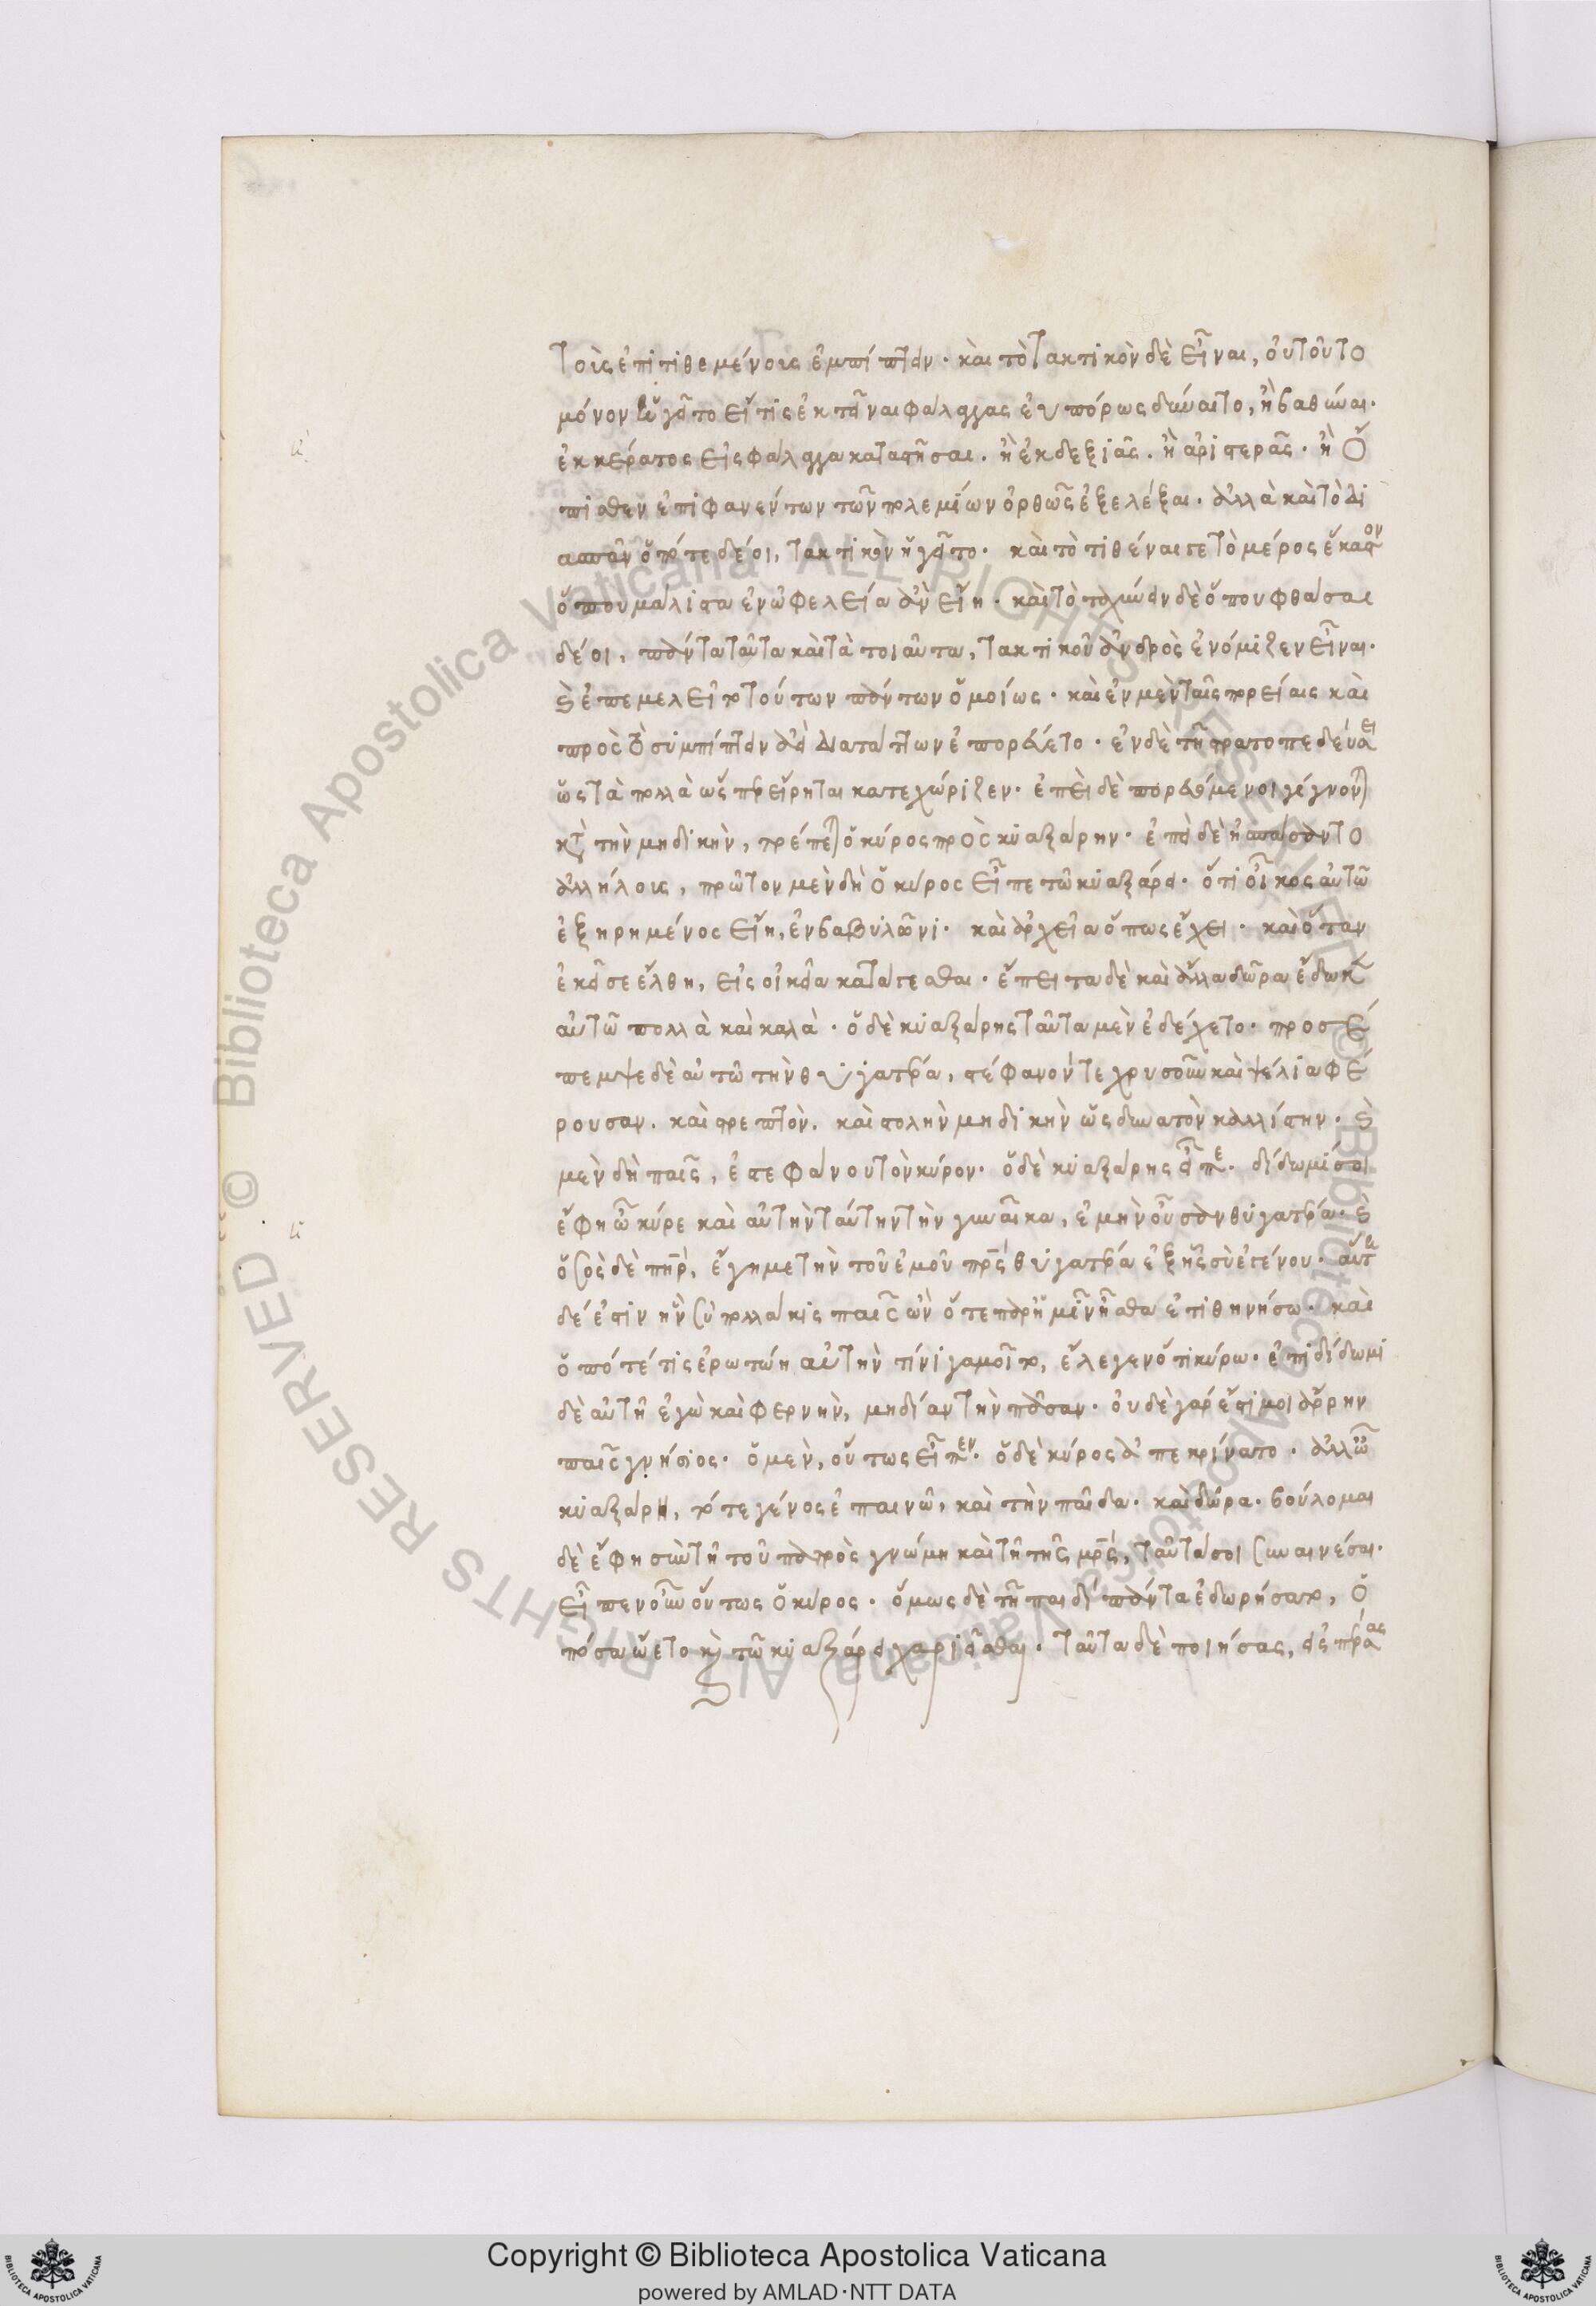 τοῖς ἐπιτιθεμένοις ἐμπίπτειν· καὶ τὸ τακτικὸν δὲ εἶναι, οὐ τοῦτο
μόνον ἡγεῖτο εἴ τις ἐκτεῖναι φάλαγγας εὐπόρως δύναιτο, ἢ βαθῦναι·
ἐκ κέρατος εἰς φάλαγγα καταστῆσαι. ἢ ἐκ δεξιᾶς. ἢ ἀριστερᾶς· ἢ ὄ
πισθεν ἐπιφανέντων τῶν πολεμίων ὀρθῶς ἐξελίξαι· ἀλλὰ καὶ τὸ δι
ασπᾶν ὁπότε δέοι, τακτικὸν ἡγεῖτο· καὶ τὸ τιθέναι γε τὸ μέρος ἕκαστον
ὅπου μάλιστα ἐν ὠφελείᾳ ἂν εἴη· καὶ τὸ ταχύνειν δὲ ὅπου φθάσαι
δέοι, πάντα ταῦτα καὶ τὰ τοιαῦτα, τακτικοῦ ἀνδρὸς ἐνόμιζεν εἶναι·
καὶ ἐπεμελεῖτο τούτων πάντων ὁμοίως· καὶ ἐν μὲν ταῖς πορείαις καὶ
πρὸς τὸ συμπίπτειν ἀεὶ διατάττων ἐπορεύετο· ἐν δὲ τῇ στρατοπεδεύσει
ὡς τὰ πολλὰ ὥσπερ εἴρηται κατεχώριζεν· ἐπεὶ δὲ πορευόμενοι γίγνονται
κατὰ τὴν μηδικὴν, τρέπεται ὁ κύρος πρὸς κυαξάρην· ἐπεὶ δὲ ἠσπάσαντο
ἀλλήλοις, πρῶτον μὲν δὴ ὁ κύρος εἶπε τῷ κυαξάρει· ὅτι οἶκος αὐτῷ
ἐξῃρημένος εἴη, ἐν βαβυλῶνι· καὶ ἀρχεῖα ὅπως ἔχει· καὶ ὅταν
ἐκεῖσε ἔλθῃ, εἰς οἰκεῖα κατάγεσθαι· ἔπειτα δὲ καὶ ἄλλα δῶρα ἔδωκεν
αὐτῷ πολλὰ καὶ καλά· ὁ δὲ κυαξάρης ταῦτα μὲν ἐδέχετο· προσέ
πεμψε δὲ αὐτῷ τὴν θυγατέρα, στέφανόν τε χρυσοῦν καὶ ψέλια φέ
ρουσαν. καὶ στρεπτὸν. καὶ στολὴν μηδικὴν ὡς δυνατὸν καλλίστην· καὶ
μὲν δὴ παῖς, ἐστεφάνου τὸν κύρον· ὁ δὲ κυαξάρης εἶπε· δίδωμί σοι
ἔφη ὦ κύρε καὶ αὐτὴν ταύτην τὴν γυναῖκα, ἐμὴν οὖσαν θυγατέρα· καὶ
ὁ σὸς δὲ πατὴρ, ἔγημε τὴν τοῦ ἐμοῦ πατρὸς θυγατέρα ἐξ ἧς σὺ ἐγένου· αὕτη
δέ ἐστιν ἣν σὺ πολλάκις παῖς ὢν ὅτε παρ' ἡμῖν ἦσθα ἐτιθηνήσω· καὶ
ὁπότε τις ἐρωτώη αὐτὴν τίνι γαμοῖτο, ἔλεγεν ὅτι κύρῳ· ἐπιδίδωμι
δὲ αὐτῇ ἐγὼ καὶ φερνὴν, μηδίαν τὴν πᾶσαν· οὐδὲ γάρ ἐστί μοι ἄρρην
παῖς γνήσιος· ὁ μὲν, οὕτως εἶπεν· ὁ δὲ κύρος ἀπεκρίνατο· ἀλλ' ὦ
κυαξάρη, τό τε γένος ἐπαινῶ, καὶ τὴν παῖδα· καὶ δῶρα· βούλομαι
δὲ ἔφη σὺν τῇ τοῦ πατρὸς γνώμῃ καὶ τῇ τῆς μητρός, ταῦτά σοι συναινέσαι·
εἶπεν οὖν οὕτως ὁ κύρος· ὅμως δὲ τῇ παιδὶ πάντα ἐδωρήσατο, ὁ
πόσα ᾤετο καὶ τῷ κυαξάρει χαριεῖσθαι· ταῦτα δὲ ποιήσας, εἰς πέρσας
Copyright © Biblioteca Apostolica Vaticana
powered by AMLAD·NTT DATA